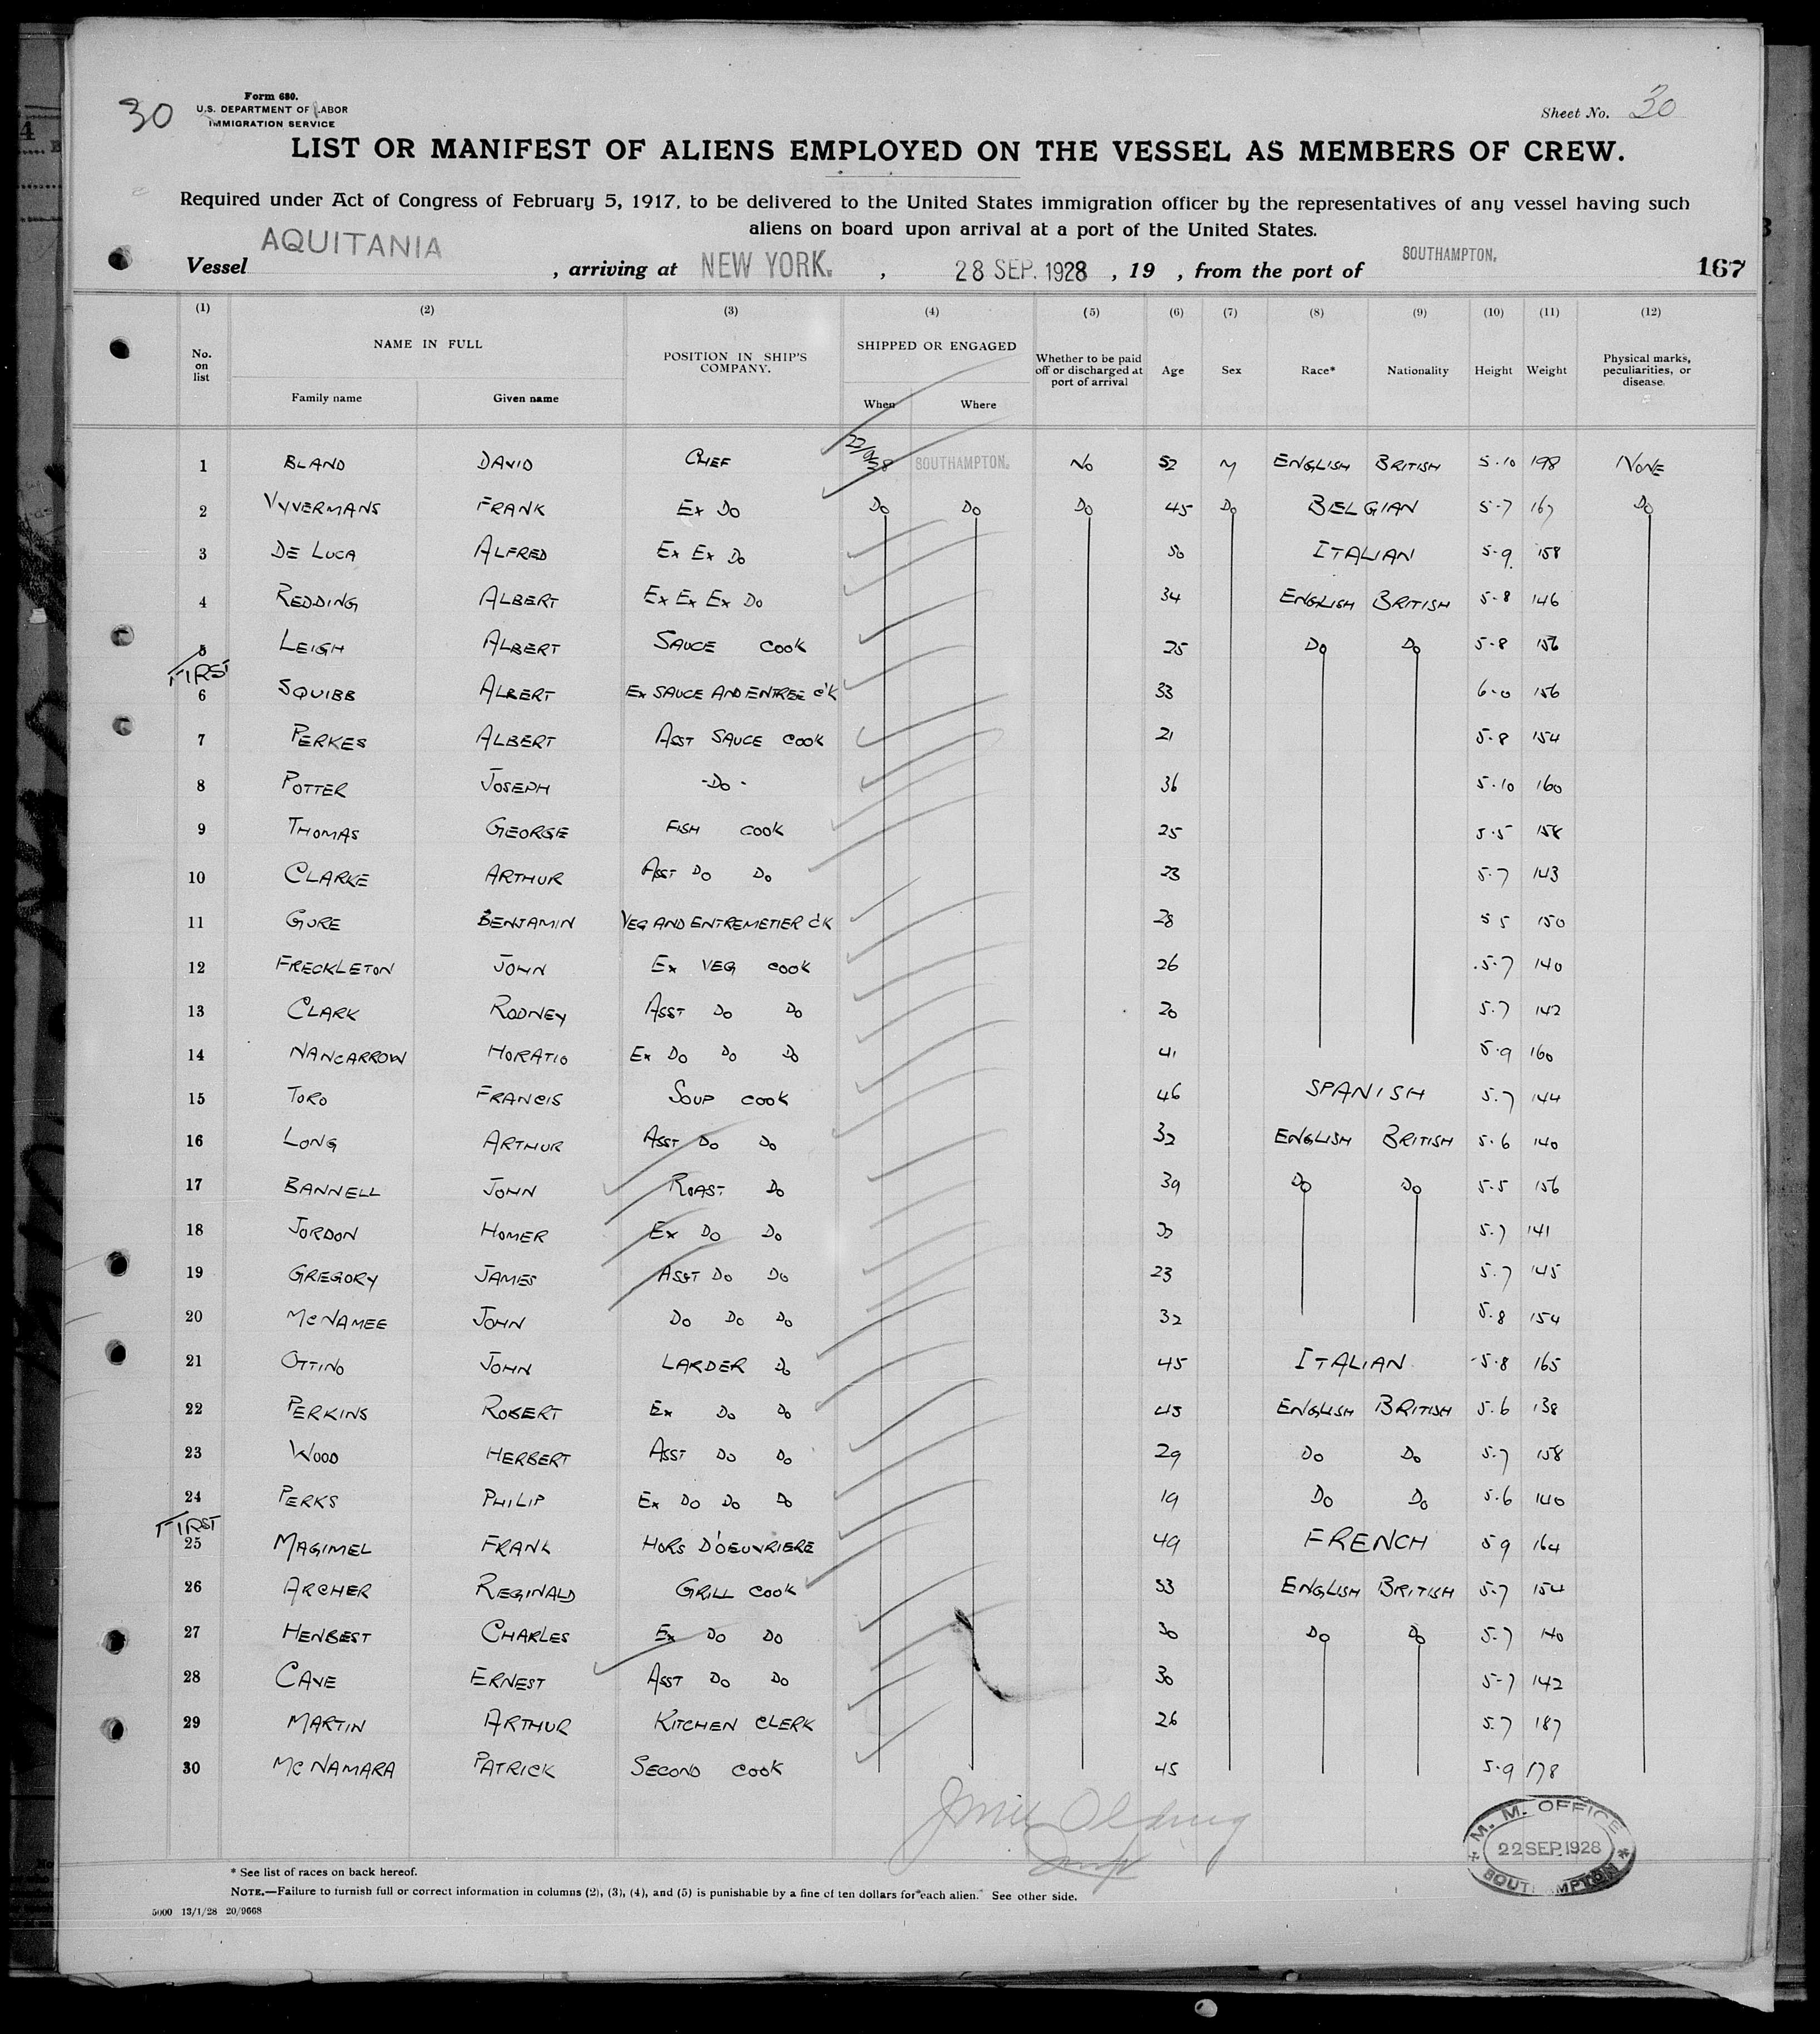 30
Form 680.
U.S. DEPARTMENT OF LABOR
IMMIGRATION SERVICE
Sheet No. 30
LIST OR MANIFEST OF ALIENS EMPLOYED ON THE VESSEL AS MEMBERS OF CREW.
Required under Act of Congress of February 5, 1917, to be delivered to the United States immigration officer by the representatives of any vessel having such
aliens on board upon arrival at a port of the United States.
Vessel AQUITANIA , arriving at NEW YORK. , 28 SEP. 1928 , 19 , from the port of SOUTHAMPTON. 167
(1) (2) (3) (4) (5) (6) (7) (8) (9) (10) (11) (12)
No. on list NAME IN FULL POSITION IN SHIP'S COMPANY. SHIPPED OR ENGAGED Whether to be paid off or discharged at port of arrival Age Sex Race* Nationality Height Weight Physical marks, peculiarities, or disease.
Family name Given name When Where
1 BLAND DAVID CHEF SOUTHAMPTON. No 52 M ENGLISH BRITISH 5.10 198 NONE
2 VYVERMANS FRANK Ex Do Do Do Do 45 Do BELGIAN 5-7 167 Do
3 DE LUCA ALFRED Ex Ex Do 50 ITALIAN 5-9 158
4 REDDING ALBERT Ex Ex Ex Do 34 ENGLISH BRITISH 5-8 146
5 LEIGH ALBERT SAUCE COOK 25 Do Do 5-8 156
FIRST
6 SQUIBB ALBERT Ex SAUCE AND ENTREE C'K 33 6-0 156
7 PERKES ALBERT ASST SAUCE COOK 21 5-8 154
8 POTTER JOSEPH -Do- 36 5.10 160
9 THOMAS GEORGE FISH COOK 25 5.5 158
10 CLARKE ARTHUR ASST Do Do 23 5.7 143
11 GORE BENJAMIN VEG AND ENTREMETIER C'K 28 5 5 150
12 FRECKLETON JOHN Ex VEG COOK 26 5-7 140
13 CLARK RODNEY ASST Do Do 20 5.7 142
14 NANCARROW HORATIO Ex Do Do Do 41 5.9 160
15 TORO FRANCIS SOUP COOK 46 SPANISH 5.7 144
16 LONG ARTHUR ASST Do Do 32 ENGLISH BRITISH 5.6 140
17 BANNELL JOHN ROAST Do 39 Do Do 5.5 156
18 JORDON HOMER Ex Do Do 5.7 141
19 GREGORY JAMES ASST Do Do 23 5.7 145
20 McNAMEE JOHN Do Do Do 32 5.8 154
21 OTTINO JOHN LARDER Do 45 ITALIAN 5.8 165
22 PERKINS ROBERT Ex Do Do 45 ENGLISH BRITISH 5.6 138
23 WOOD HERBERT ASST Do Do 29 Do Do 5.7 158
24 PERKS PHILIP Ex Do Do Do 19 Do Do 5.6 140
FIRST
25 MAGIMEL FRANK HORS D'OEUVRIERE 49 FRENCH 5 9 164
26 ARCHER REGINALD GRILL COOK 53 ENGLISH BRITISH 5.7 154
27 HENBEST CHARLES Ex Do Do 30 Do Do 5.7 140
28 CAVE ERNEST ASST Do Do 30 5-7 142
29 MARTIN ARTHUR KITCHEN CLERK 26 5.7 187
30 McNAMARA PATRICK SECOND COOK 45 5.9 178
M. M. OFFICE
22 SEP. 1928
SOUTHAMPTON
* See list of races on back hereof.
NOTE.—Failure to furnish full or correct information in columns (2), (3), (4), and (5) is punishable by a fine of ten dollars for each alien. See other side.
5000 13/1/28 20/9668